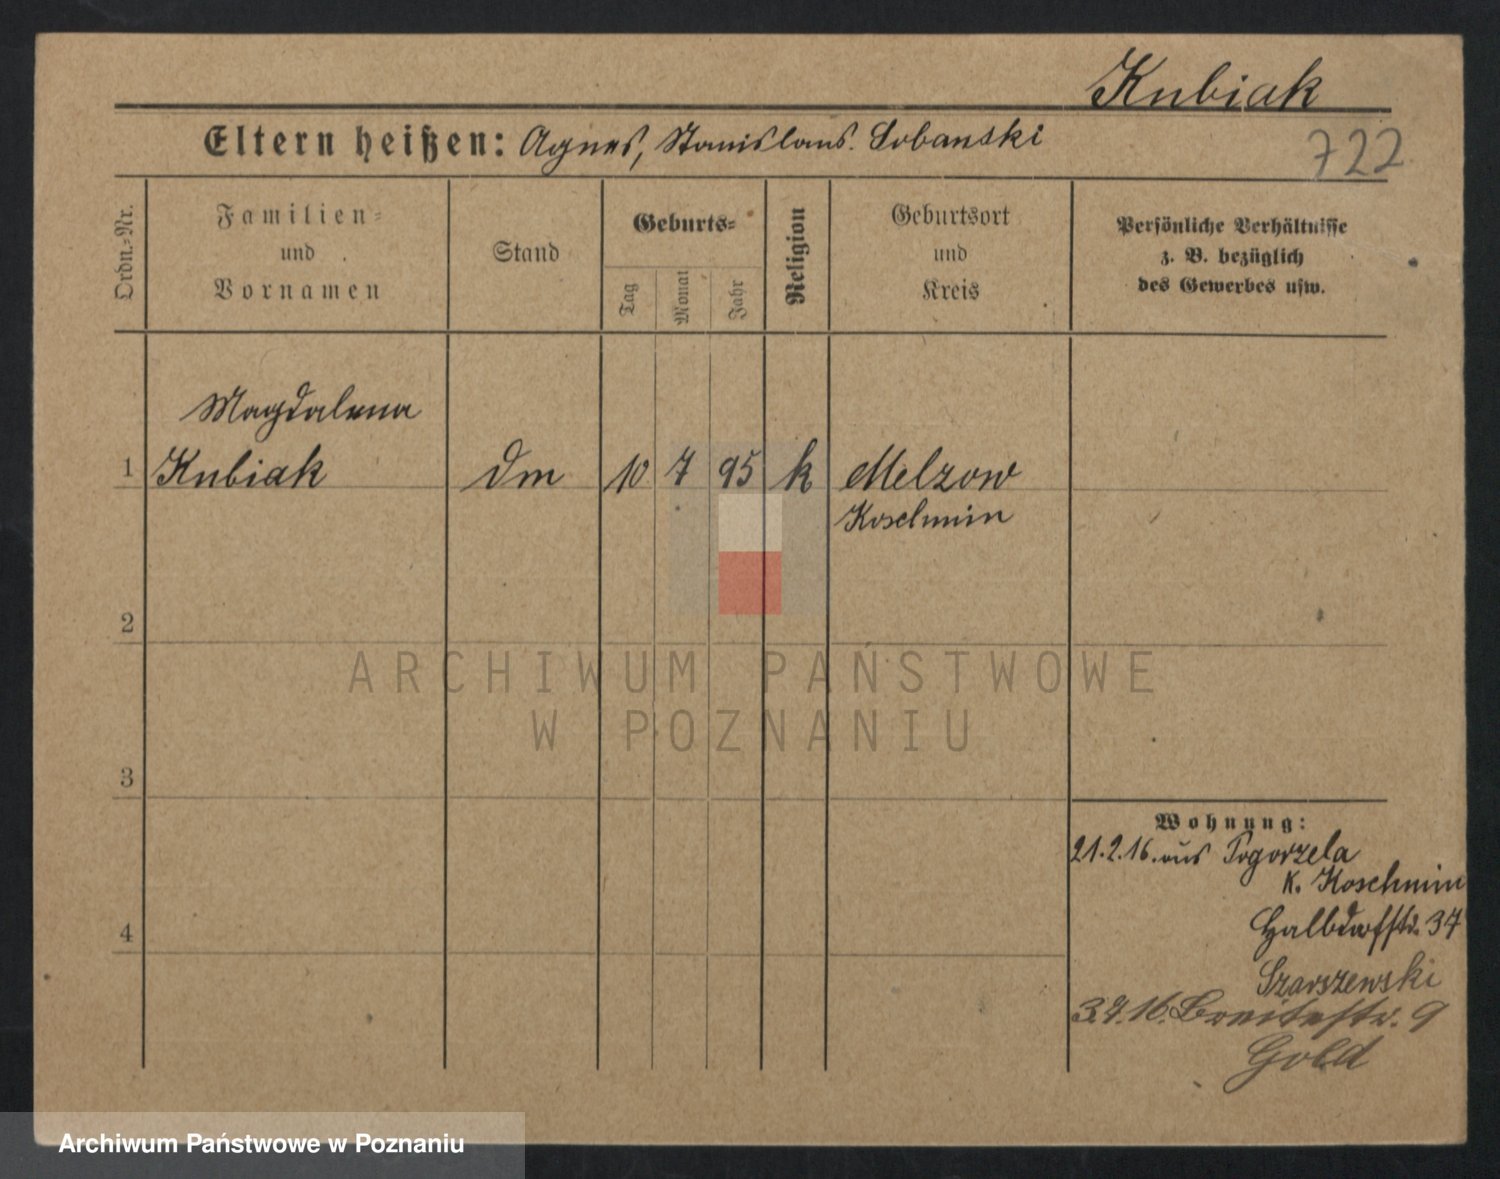 Kubiak
Eltern heißen: Agnes, Stanislaus. Sobanski
722
Ordn.-Nr.
Familien-
und
Vornamen
Stand
Geburts-
Tag
Monat
Jahr
Religion
Geburtsort
und
Kreis
Persönliche Verhältnisse
z. B. bezüglich
des Gewerbes usw.
Magdalena
1 Kubiak Dm 10 7 95 k Melzow
Koschmin
2
3
4
Wohnung:
21.2.16. aus Pogorzela
K. Koschmin
Halbdorfstr. 37
Szarszewski
16. Breitestr. 9
Gold
ARCHIWUM PAŃSTWOWE
W POZNANIU
Archiwum Państwowe w Poznaniu